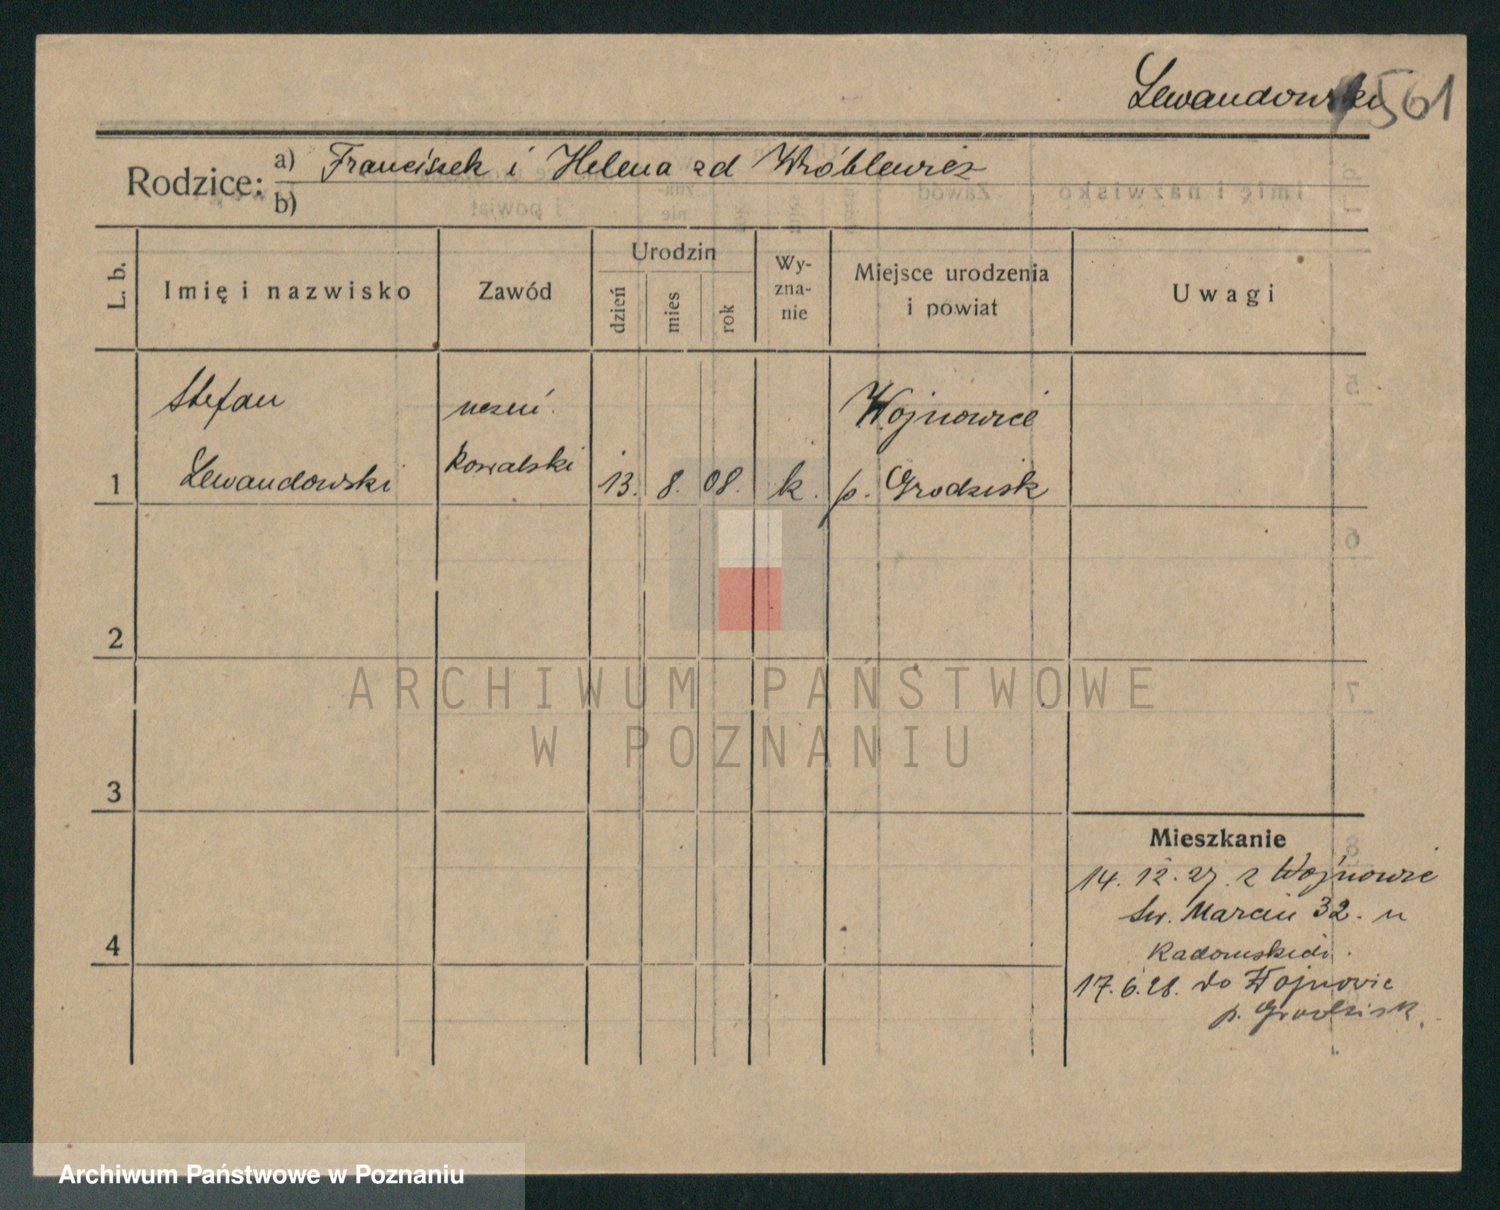 Lewandowski 561
Rodzice: a) Franciszek i Helena zd Wróblewicz
b)
L. b.
Imię i nazwisko
Zawód
Urodzin
dzień
mies
rok
Wy-
zna-
nie
Miejsce urodzenia
i powiat
Uwagi
Stefan uczeń Wojnowice
1 Lewandowski kowalski 13. 8. 08. k. p. Grodzisk
2
3
4
Mieszkanie
14. 12. 27. z Wojnowic
św. Marcin 32. u
17. 6. 28. do Wojnowic
p. Grodzisk.
ARCHIWUM PAŃSTWOWE
W POZNANIU
Archiwum Państwowe w Poznaniu